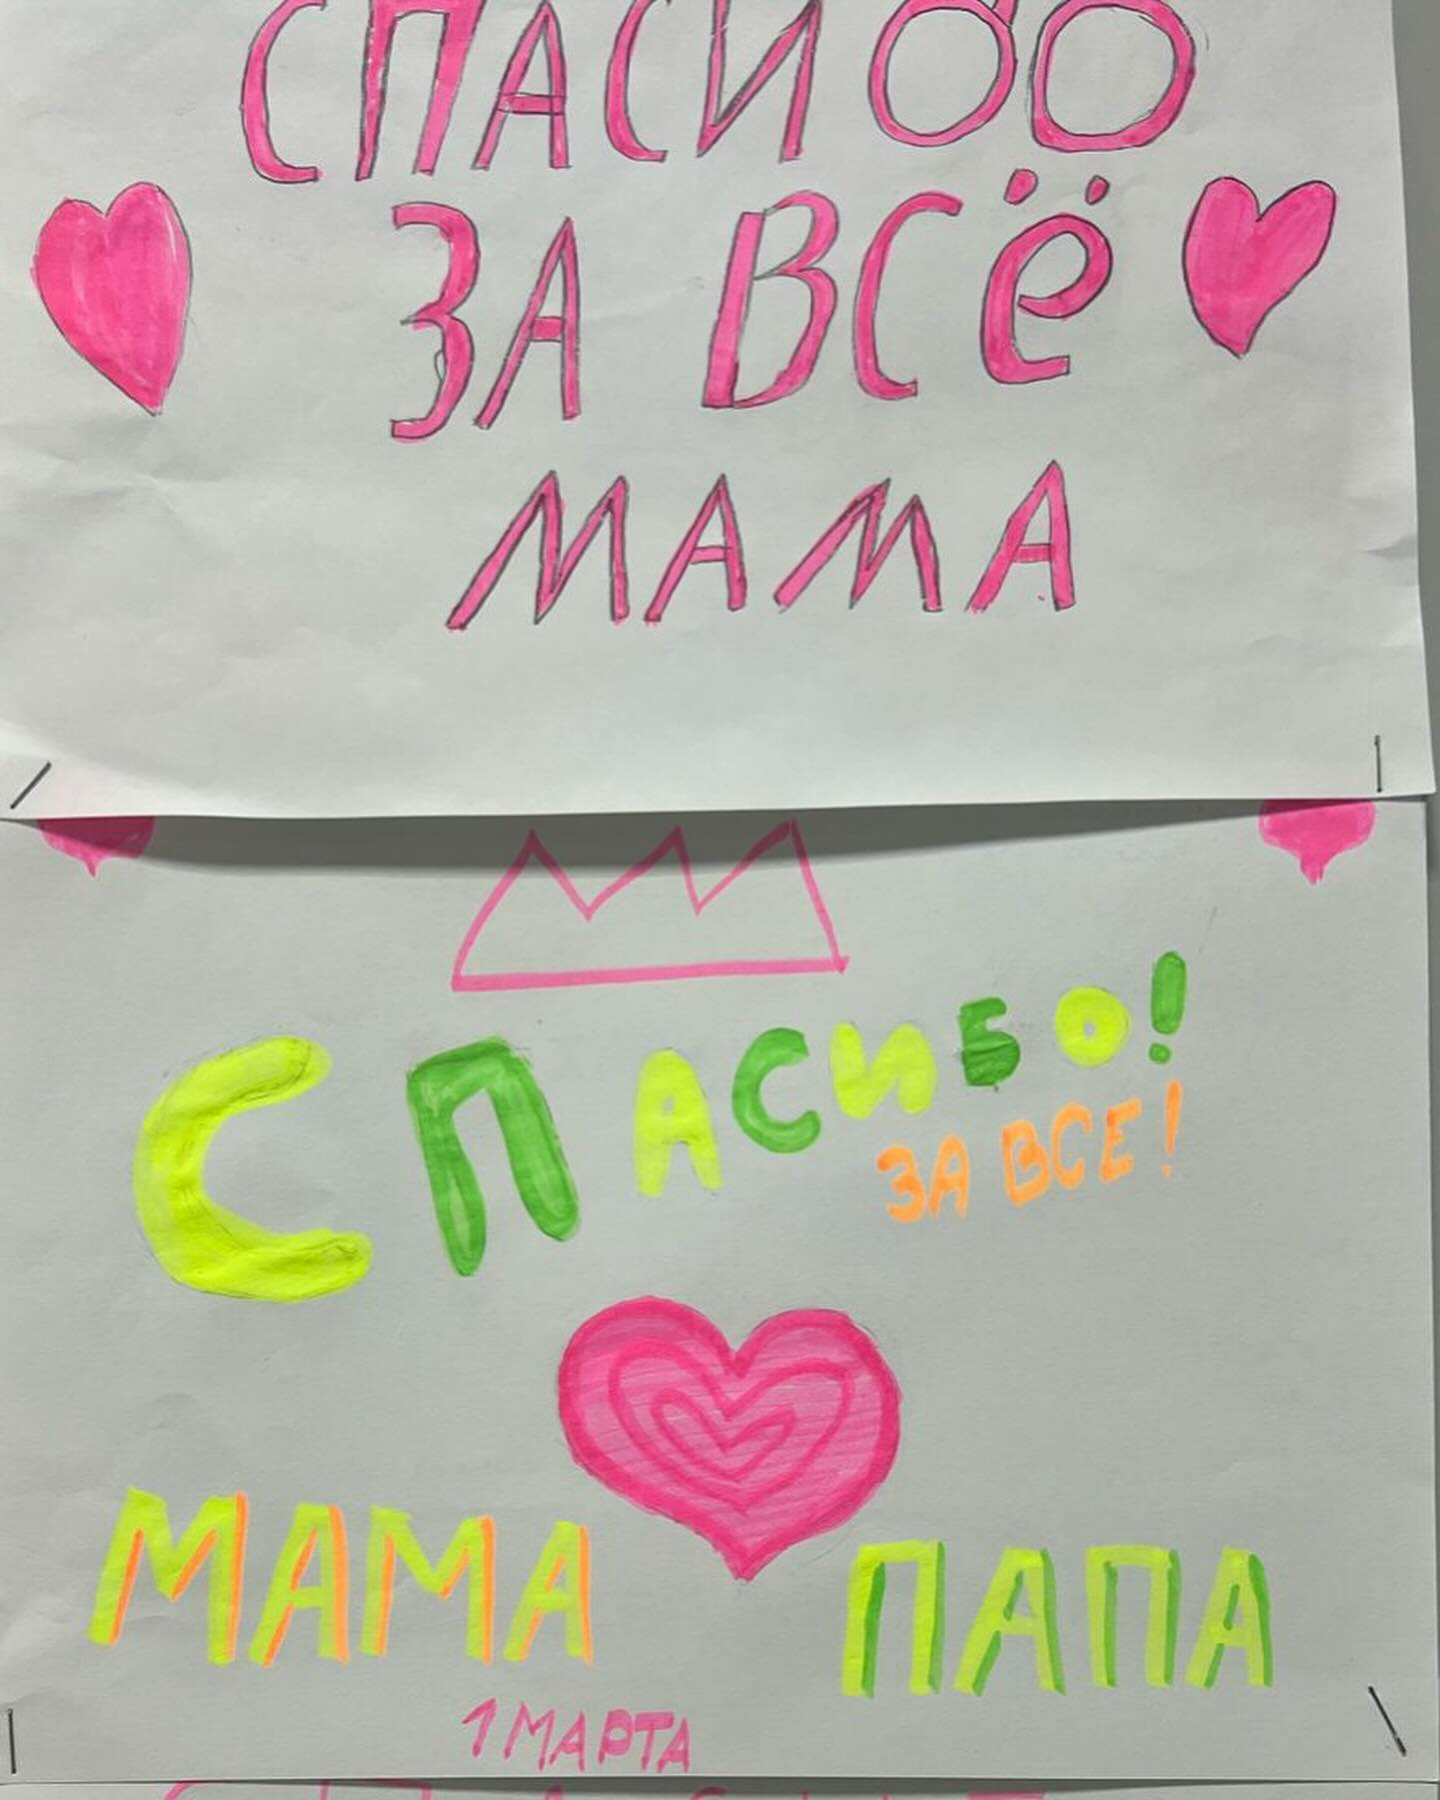 СПАСИбО
ЗА ВСё
МАМА
СПАСИБО!
ЗА ВСЕ!
МАМА ПАПА
1 МАРТА